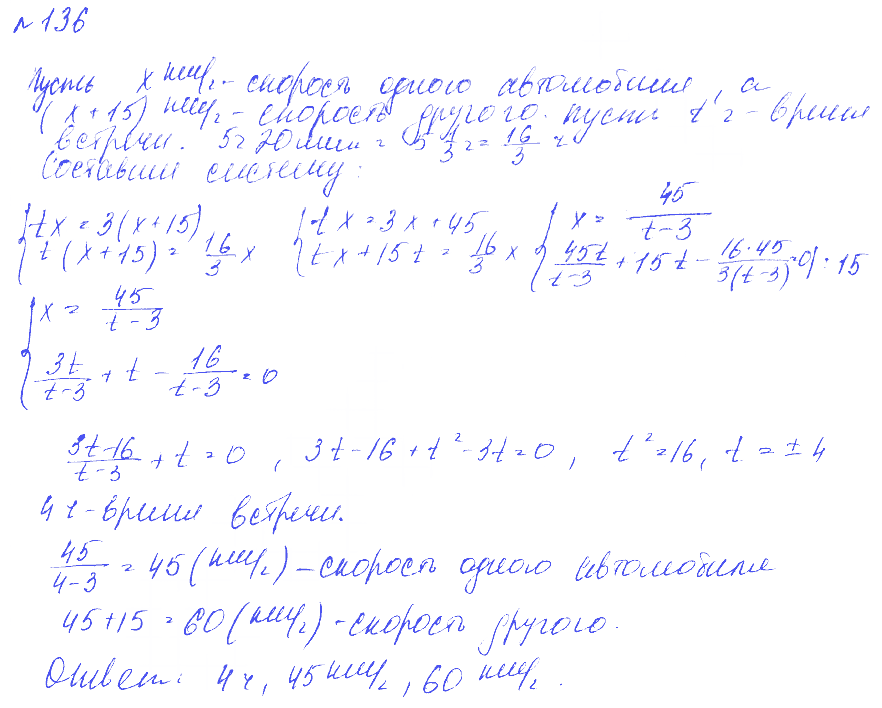 №136
Пусть x км/ч - скорость одного автомобиля, а
(x+15) км/ч - скорость другого. Пусть t ч - время
встречи. 5ч 20мин = 5 1/3 ч = 16/3 ч
Составим систему:
{ tx = 3(x+15) { tx = 3x+45 { x = 45/(t-3)
{ t(x+15) = 16/3 x { tx+15t = 16/3 x { 45t/(t-3) + 15t - 16·45/(3(t-3)) = 0 | : 15
{ x = 45/(t-3)
{ 3t/(t-3) + t - 16/(t-3) = 0
(3t-16)/(t-3) + t = 0 , 3t-16+t²-3t=0 , t²=16, t = ±4
4 ч - время встречи.
45/(4-3) = 45 (км/ч) - скорость одного автомобиля
45+15 = 60 (км/ч) - скорость другого.
Ответ: 4 ч, 45 км/ч, 60 км/ч.